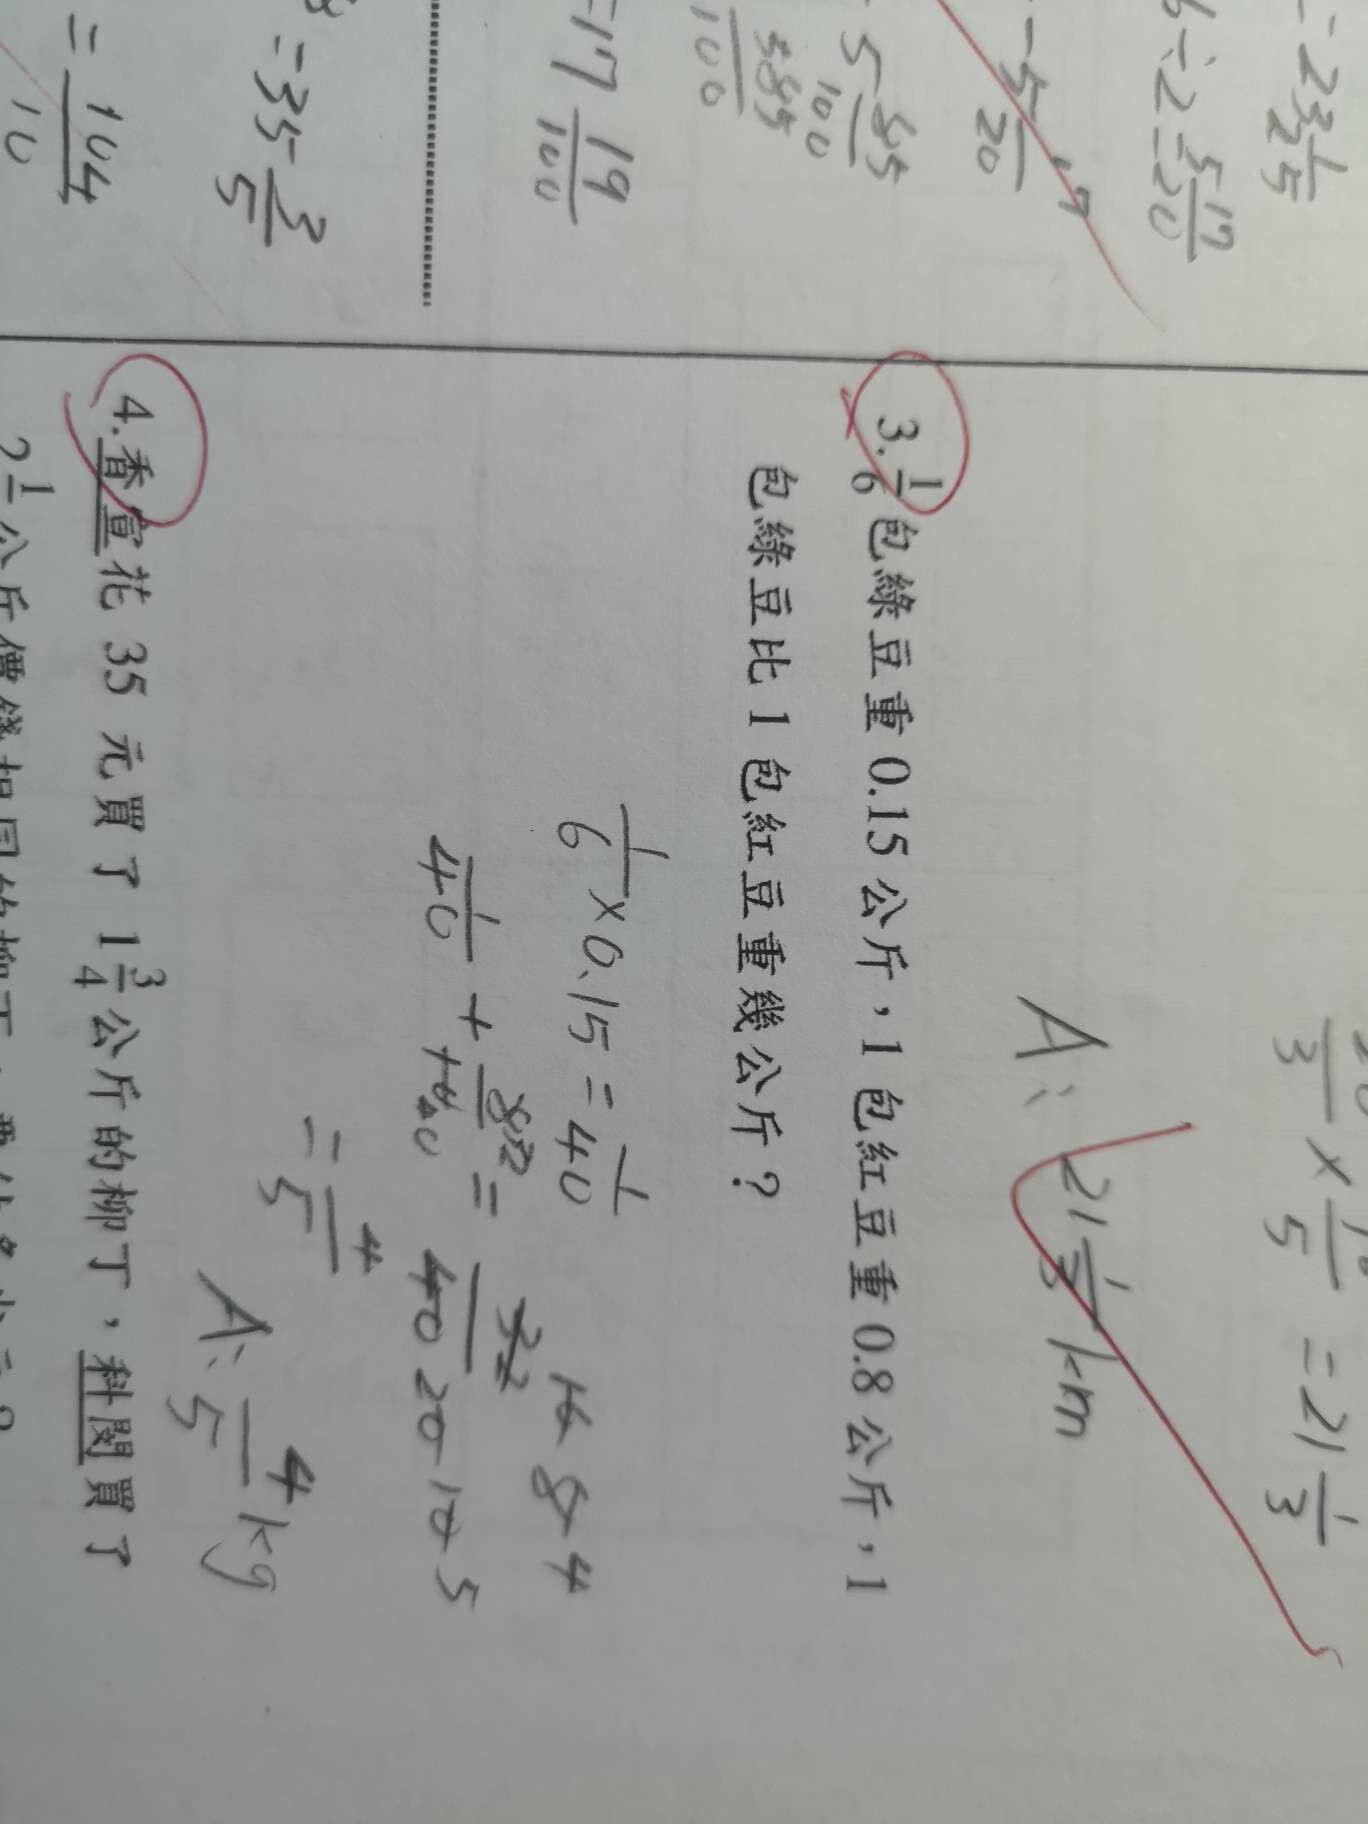 = 23 1/5
6÷2 = 5 17/20
- 5/20 17
5 85/100
585/100
=17 19/100
=35 3/5
= 104/10
20/3 × 16/5 = 21 1/3
A: 21 1/3 km
3. 1/6 包綠豆重 0.15 公斤，1 包紅豆重 0.8 公斤，1
包綠豆比 1 包紅豆重幾公斤？
1/6 × 0.15 = 1/40
1/40 + =
32 16 8 4
40 20 10 5
= 4/5
A: 4/5 kg
4. 香宣花 35 元買了 1 3/4 公斤的柳丁，科閔買了
2 1/ 公斤價錢相同的柳丁，要付多少元？